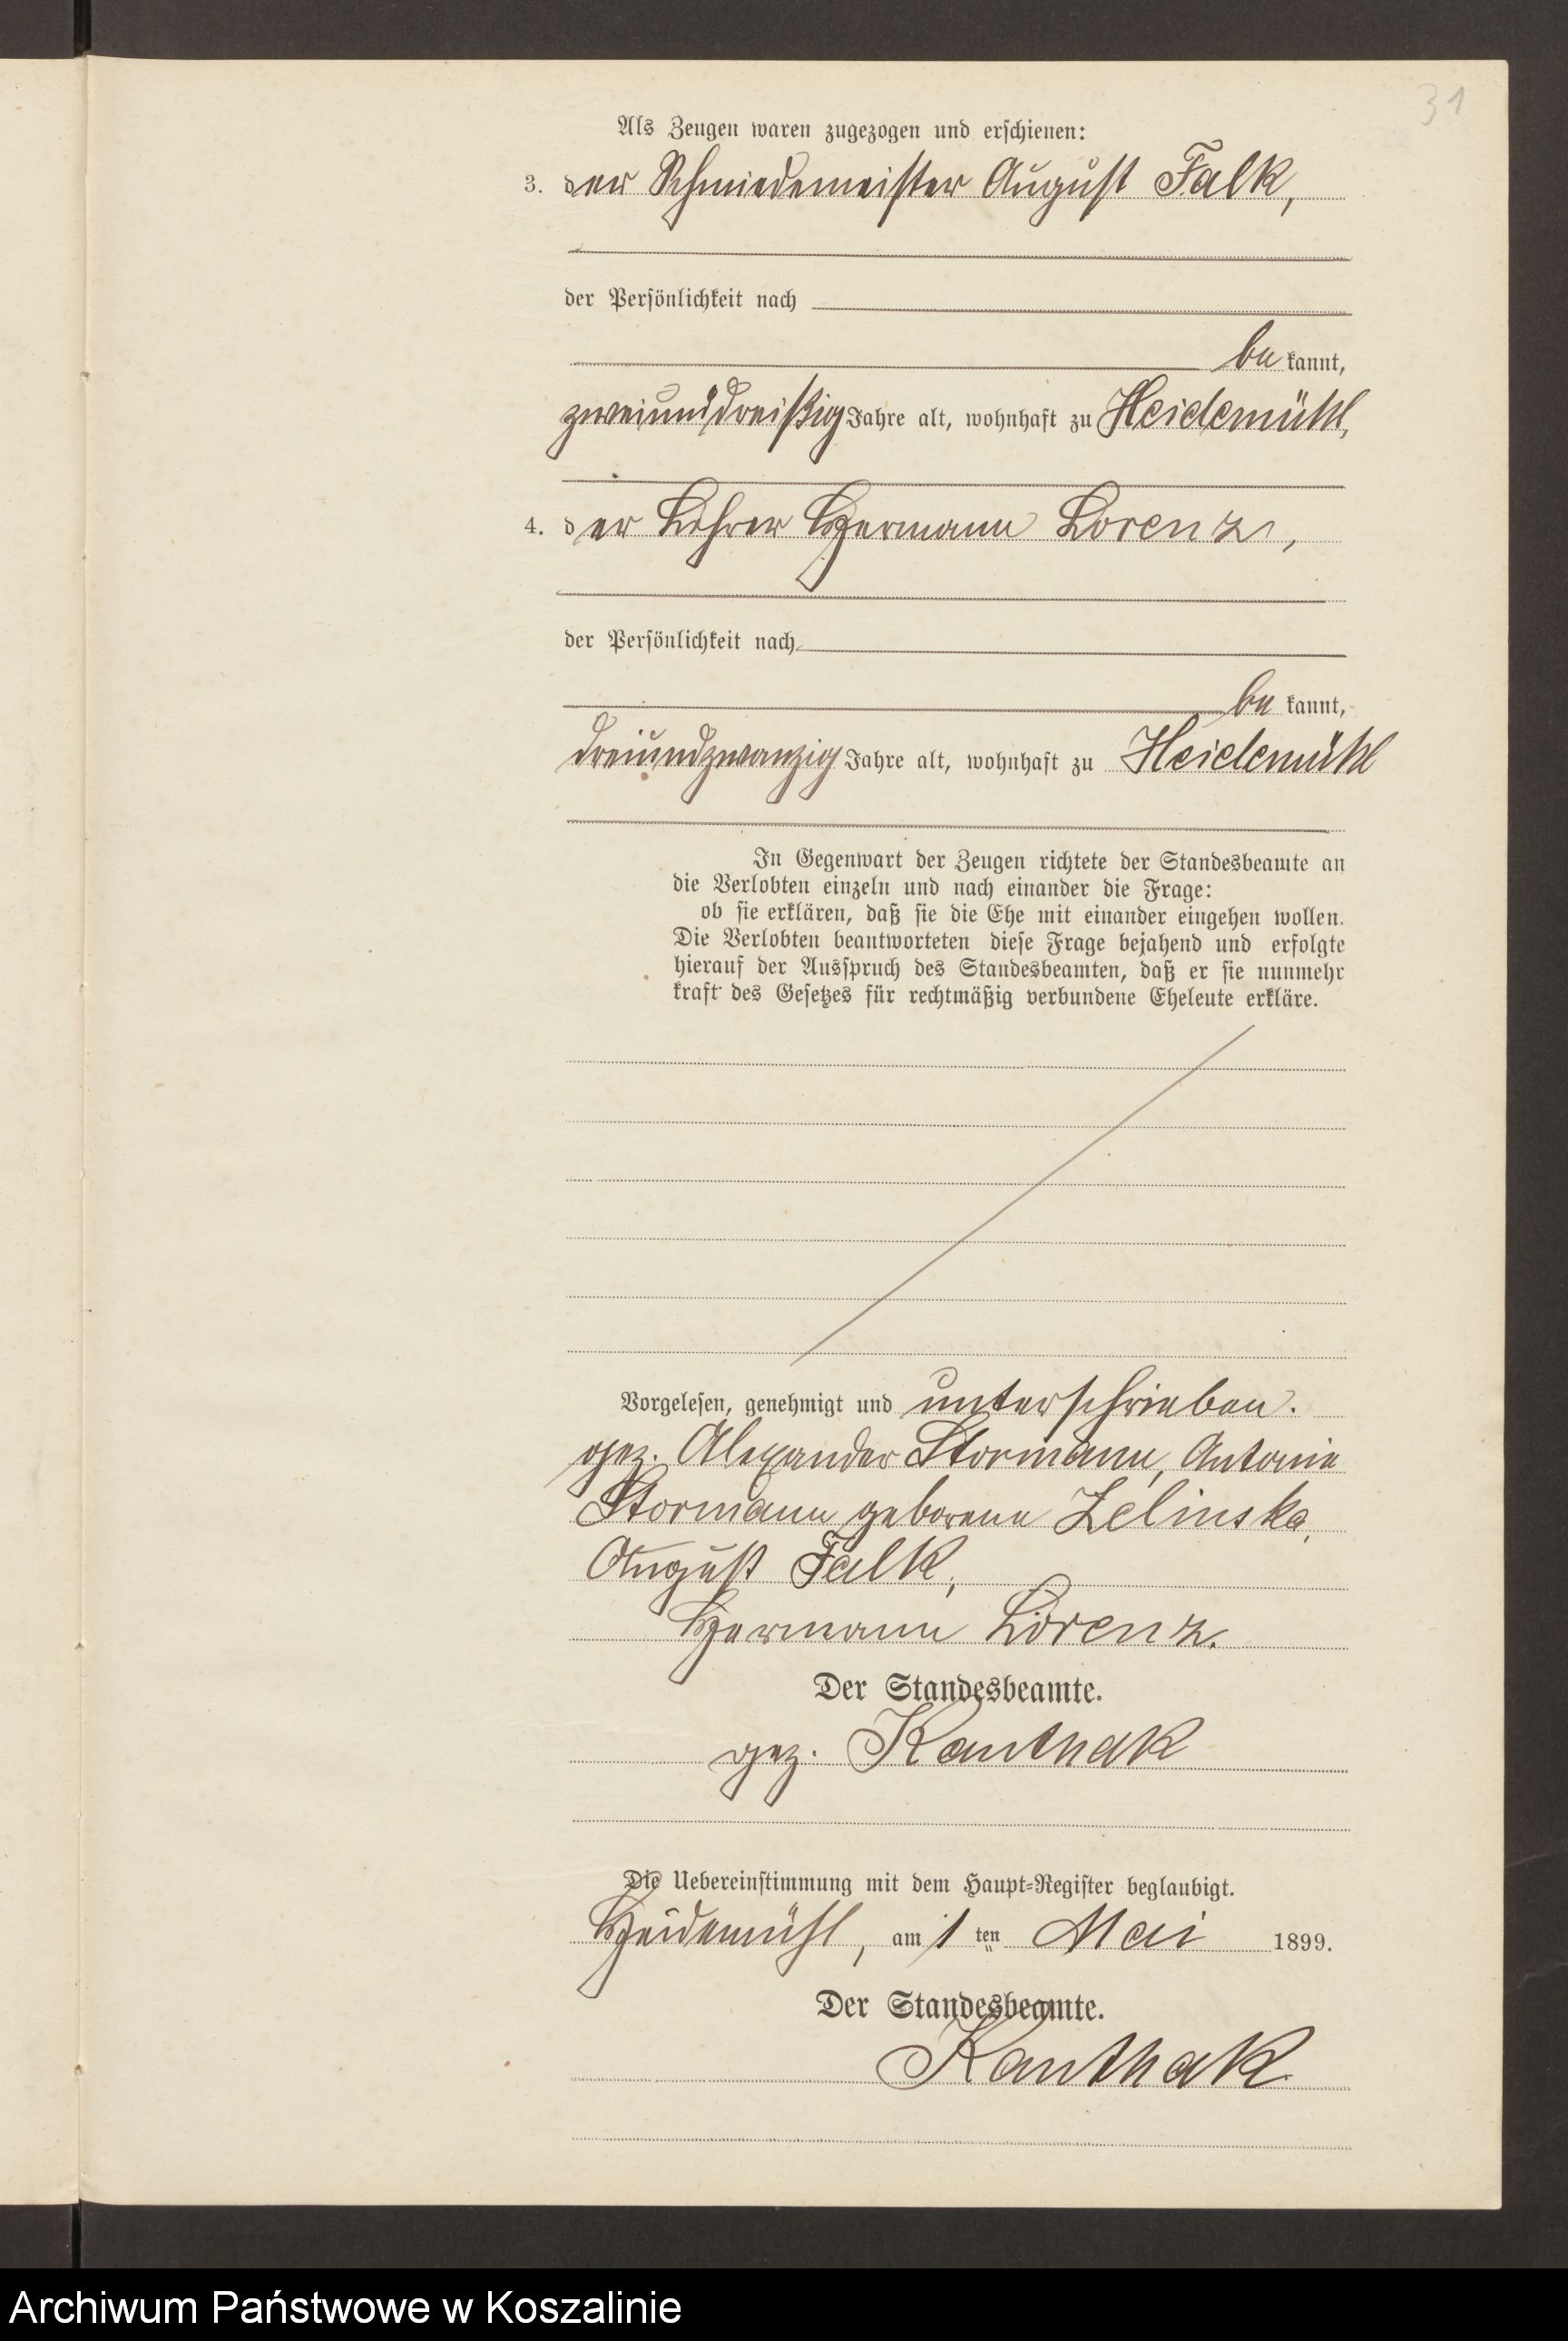 31
Als Zeugen waren zugezogen und erschienen:
3. der Schmiedemeister August Falk,
der Persönlichkeit nach
be kannt,
zweiunddreißig Jahre alt, wohnhaft zu Heidemühl,
4. der Lehrer Hermann Lorenz,
der Persönlichkeit nach
be kannt,
dreiundzwanzig Jahre alt, wohnhaft zu Heidemühl
In Gegenwart der Zeugen richtete der Standesbeamte an
die Verlobten einzeln und nach einander die Frage:
ob sie erklären, daß sie die Ehe mit einander eingehen wollen.
Die Verlobten beantworteten diese Frage bejahend und erfolgte
hierauf der Ausspruch des Standesbeamten, daß er sie nunmehr
kraft des Gesetzes für rechtmäßig verbundene Eheleute erkläre.
Vorgelesen, genehmigt und unterschrieben.
gez. Alexander Stormann, Antonie
Stormann geborene Zelinska,
August Falk,
Hermann Lorenz.
Der Standesbeamte.
gez. Kanthak
Die Uebereinstimmung mit dem Haupt-Register beglaubigt.
Heidemühl, am 1 ten Mai 1899.
Der Standesbeamte.
Kanthak
Archiwum Państwowe w Koszalinie